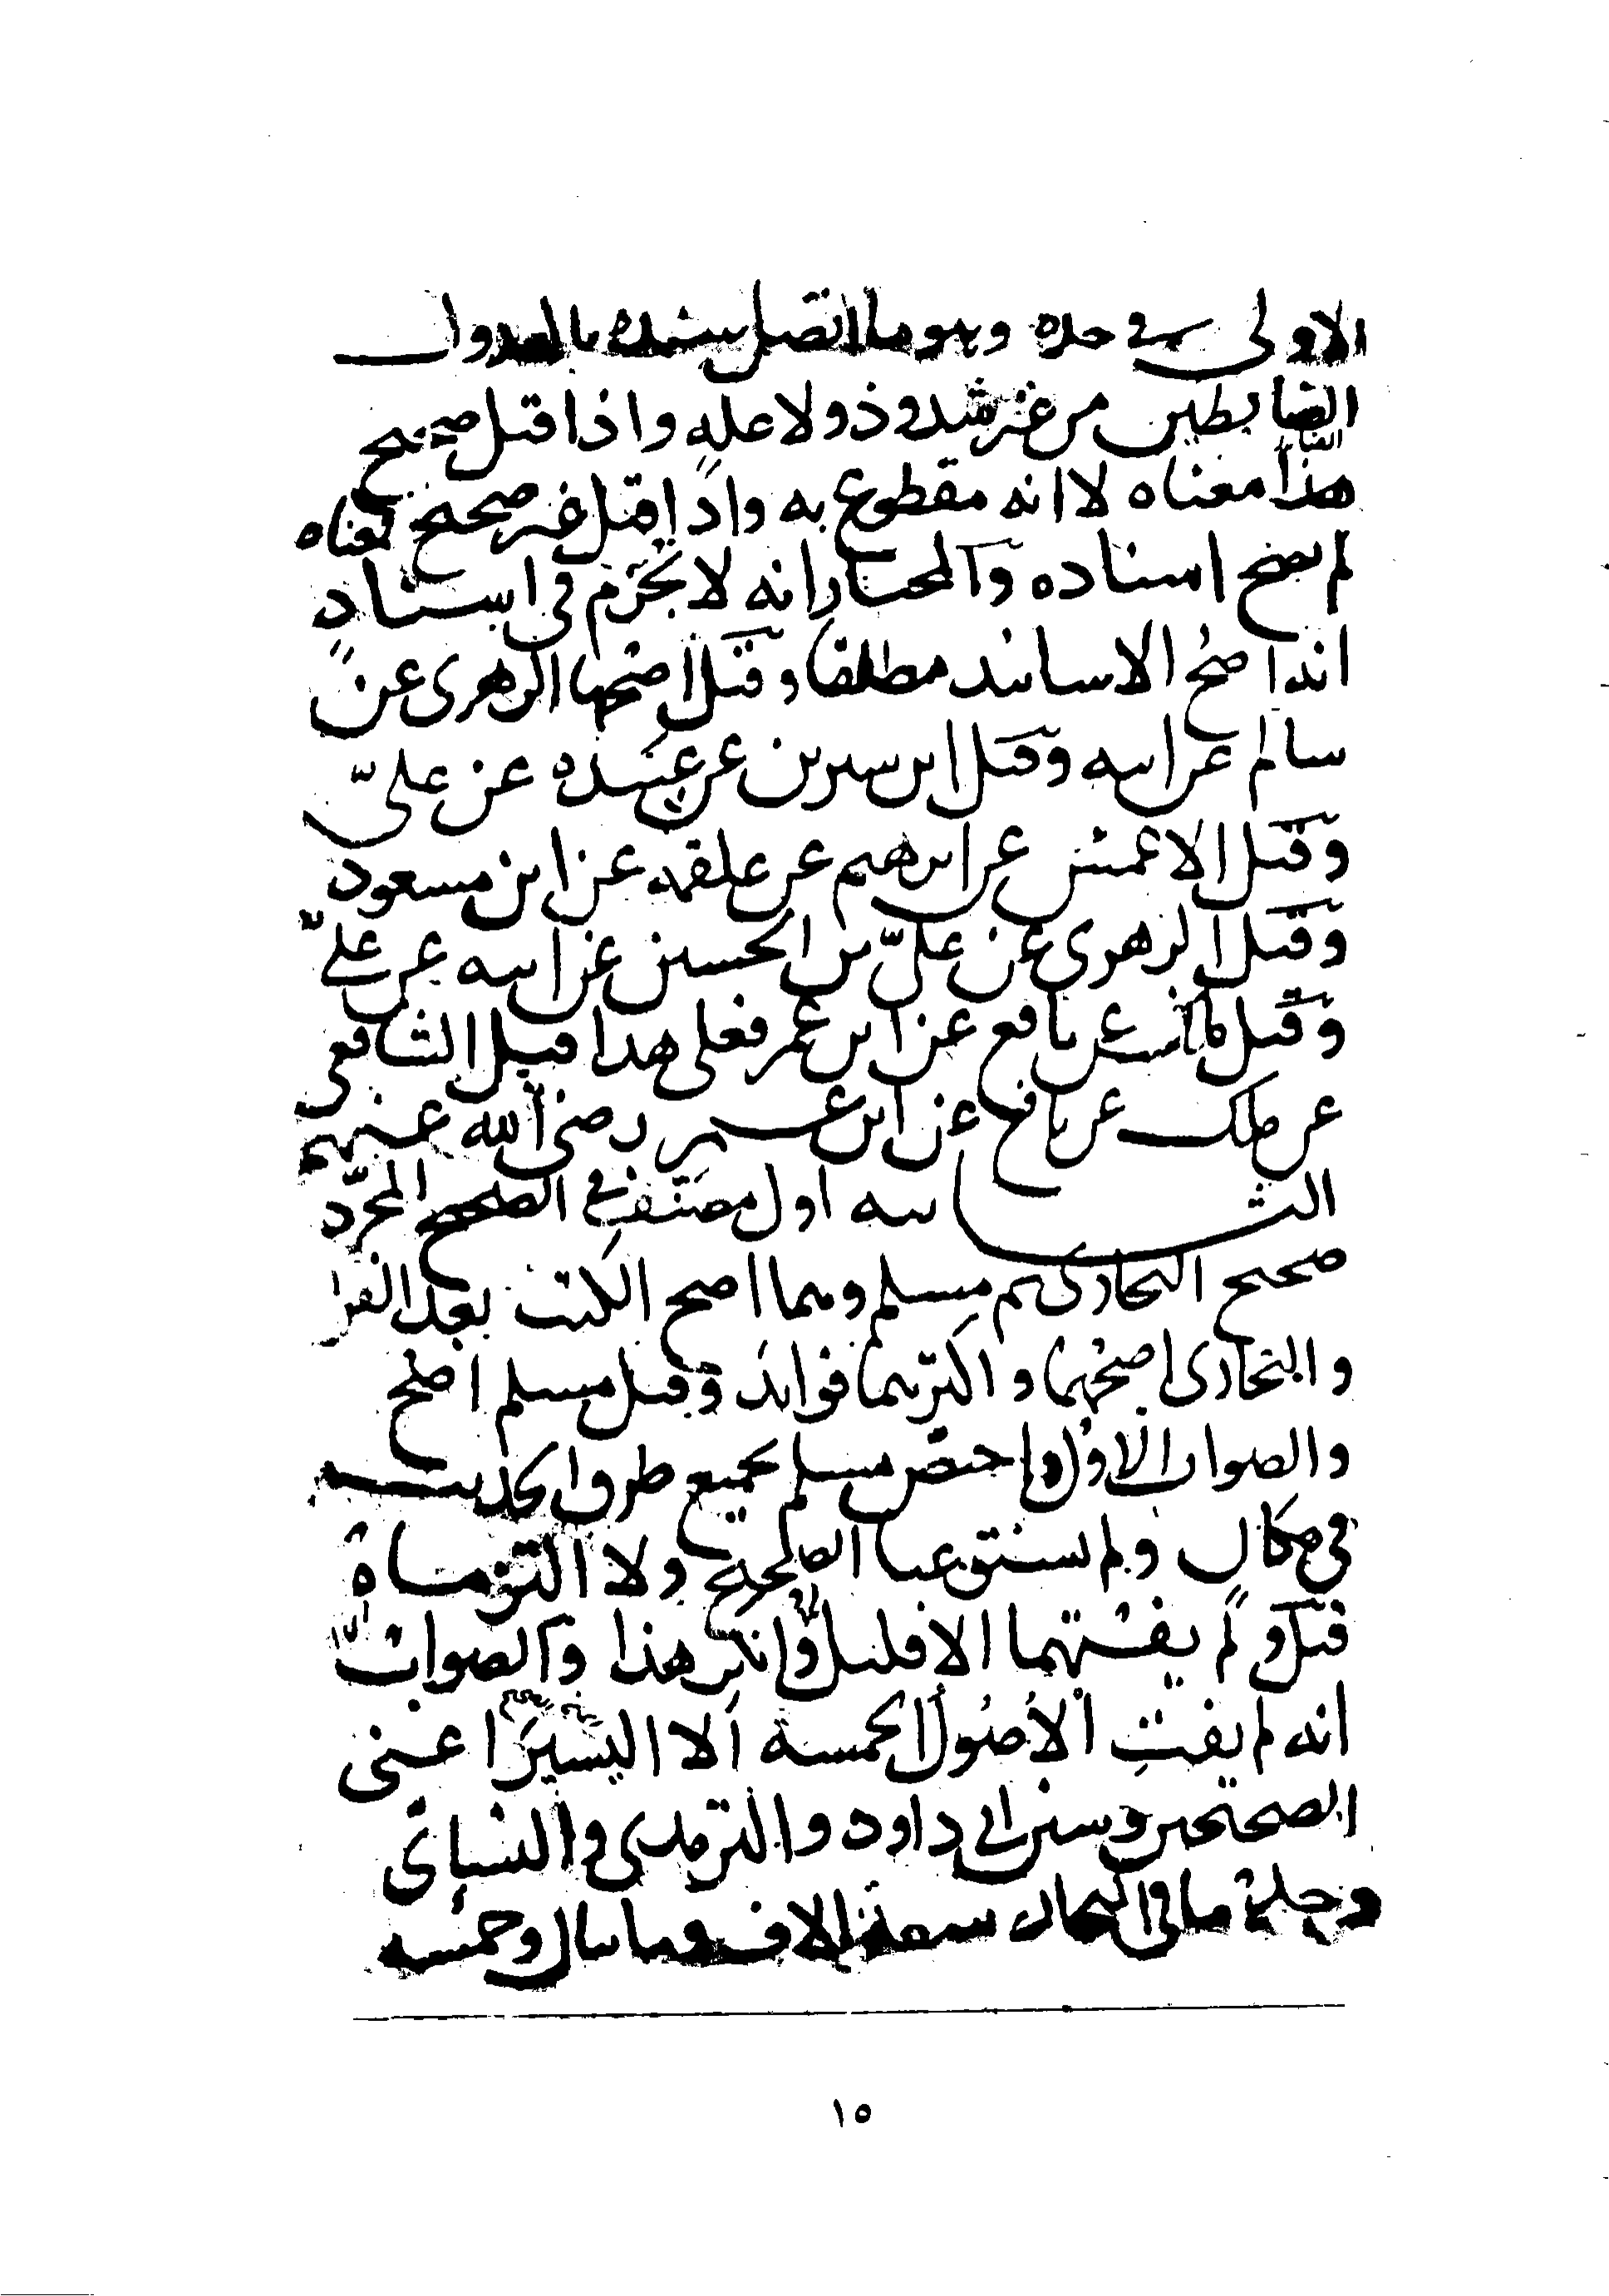 الاولى في حده وهو ما اتصل سنده بالعدول
الضابطين من غير شذوذ ولا علة واذا قيل صحيح
هذا معناه لا انه مقطوع به واذا قيل غير صحيح فمعناه
لم يصح اسناده والمختار انه لا يجزم في اسناد
انه اصح الاسانيد مطلقا وقيل اصحها الزهرى عن
سالم عن ابيه وقيل ابن سيرين عن عبيده عن علىّ
وقيل الاعمش عن ابرهيم عن علقمه عن ابن مسعود
وقيل الزهرى عن علىّ بن الحسين عن ابيه عن علىّ
وقيل مالك عن نافع عن ابن عمر فعلى هذا قيل الشافعى
عن ملك عن نافع عن ابن عمر رضى الله عنهم
الثانيه اول مصنف في الصحيح المجرّد
صحيح البخارى ثم مسلم وهما اصح الكتب بعد القرا
والبخارى اصحهما واكثرهما فوائد وقيل مسلم اصح
والصواب الاول واختص مسلم بجميع طرق الحديث
فى مكان ولم يستوعبا الصحيح ولا التزماه
قيل ولم يفتهما الا قليل وانكر هذا والصواب
انه لم يفت الاصول الخمسة الا اليسير اعنى
الصحيحين وسنن ابى داود والترمذى والنسائى
وجملة ما فى البخارى سبعة الاف ومايتان وخمسه
١٥